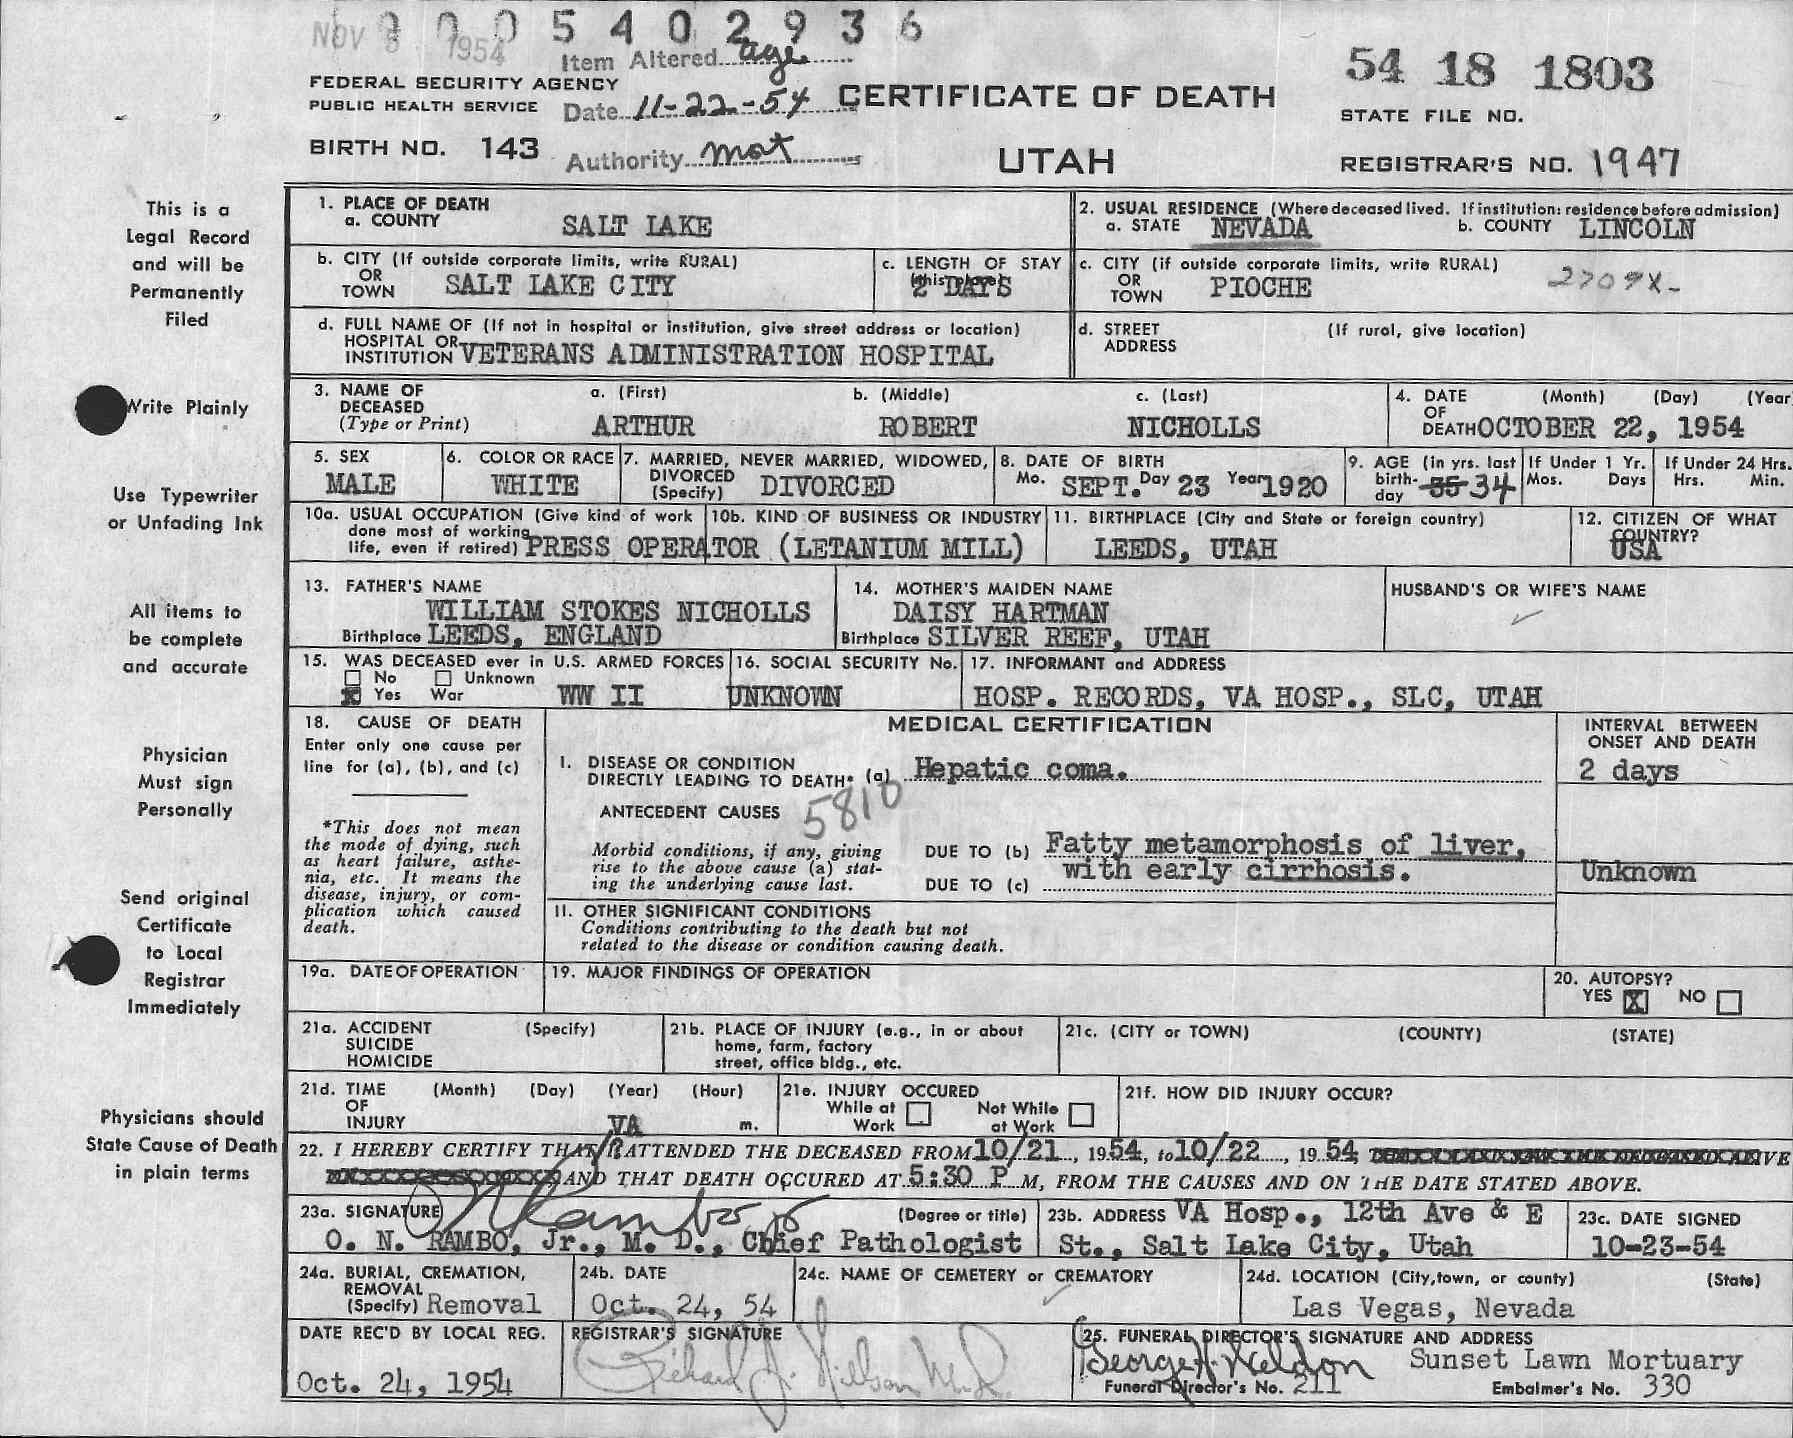 0 0 0 5 4 0 2 9 3 6
NOV 8 1954
Item Altered age
FEDERAL SECURITY AGENCY
PUBLIC HEALTH SERVICE
Date 11-22-54
CERTIFICATE OF DEATH
54 18 1803
STATE FILE NO.
BIRTH NO. 143
Authority mot
UTAH
REGISTRAR'S NO. 1947
This is a
Legal Record
and will be
Permanently
Filed
Write Plainly
Use Typewriter
or Unfading Ink
All items to
be complete
and accurate
Physician
Must sign
Personally
Send original
Certificate
to Local
Registrar
Immediately
Physicians should
State Cause of Death
in plain terms
1. PLACE OF DEATH
a. COUNTY SALT LAKE
2. USUAL RESIDENCE (Where deceased lived. If institution: residence before admission)
a. STATE NEVADA b. COUNTY LINCOLN
b. CITY (If outside corporate limits, write RURAL)
OR
TOWN SALT LAKE CITY
c. LENGTH OF STAY
(this place)
2 DAYS
c. CITY (if outside corporate limits, write RURAL)
OR
TOWN PIOCHE
2709X-
d. FULL NAME OF (If not in hospital or institution, give street address or location)
HOSPITAL OR
INSTITUTION VETERANS ADMINISTRATION HOSPITAL
d. STREET (If rural, give location)
ADDRESS
3. NAME OF a. (First) b. (Middle) c. (Last)
DECEASED
(Type or Print) ARTHUR ROBERT NICHOLLS
4. DATE (Month) (Day) (Year
OF
DEATH OCTOBER 22, 1954
5. SEX
MALE
6. COLOR OR RACE
WHITE
7. MARRIED, NEVER MARRIED, WIDOWED,
DIVORCED
(Specify) DIVORCED
8. DATE OF BIRTH
Mo. SEPT. Day 23 Year 1920
9. AGE (in yrs. last
birth-
day 35 34
If Under 1 Yr.
Mos. Days
If Under 24 Hrs.
Hrs. Min.
10a. USUAL OCCUPATION (Give kind of work
done most of working
life, even if retired) PRESS OPERATOR (LETANIUM MILL)
10b. KIND OF BUSINESS OR INDUSTRY
11. BIRTHPLACE (City and State or foreign country)
LEEDS, UTAH
12. CITIZEN OF WHAT
COUNTRY?
USA
13. FATHER'S NAME
WILLIAM STOKES NICHOLLS
Birthplace LEEDS, ENGLAND
14. MOTHER'S MAIDEN NAME
DAISY HARTMAN
Birthplace SILVER REEF, UTAH
HUSBAND'S OR WIFE'S NAME
15. WAS DECEASED ever in U.S. ARMED FORCES
No Unknown
Yes War WW II
16. SOCIAL SECURITY No.
UNKNOWN
17. INFORMANT and ADDRESS
HOSP. RECORDS, VA HOSP., SLC, UTAH
18. CAUSE OF DEATH
Enter only one cause per
line for (a), (b), and (c)
*This does not mean
the mode of dying, such
as heart failure, asthe-
nia, etc. It means the
disease, injury, or com-
plication which caused
death.
MEDICAL CERTIFICATION
INTERVAL BETWEEN
ONSET AND DEATH
I. DISEASE OR CONDITION
DIRECTLY LEADING TO DEATH* (a) Hepatic coma.
2 days
ANTECEDENT CAUSES
5810
Morbid conditions, if any, giving
rise to the above cause (a) stat-
ing the underlying cause last.
DUE TO (b) Fatty metamorphosis of liver,
with early cirrhosis.
DUE TO (c)
Unknown
II. OTHER SIGNIFICANT CONDITIONS
Conditions contributing to the death but not
related to the disease or condition causing death.
19a. DATE OF OPERATION
19. MAJOR FINDINGS OF OPERATION
20. AUTOPSY?
YES X NO
21a. ACCIDENT (Specify)
SUICIDE
HOMICIDE
21b. PLACE OF INJURY (e.g., in or about
home, farm, factory
street, office bldg., etc.
21c. (CITY or TOWN) (COUNTY) (STATE)
21d. TIME (Month) (Day) (Year) (Hour)
OF
INJURY m.
21e. INJURY OCCURED
While at Work Not While at Work
21f. HOW DID INJURY OCCUR?
VA
22. I HEREBY CERTIFY THAT ATTENDED THE DECEASED FROM 10/21, 1954, to 10/22, 1954
AND THAT DEATH OCCURED AT 5:30 P M, FROM THE CAUSES AND ON THE DATE STATED ABOVE.
23a. SIGNATURE Rambo Jr (Degree or title)
O. N. RAMBO, Jr., M. D., Chief Pathologist
23b. ADDRESS VA Hosp., 12th Ave & E
St., Salt Lake City, Utah
23c. DATE SIGNED
10-23-54
24a. BURIAL, CREMATION,
REMOVAL
(Specify) Removal
24b. DATE
Oct. 24, 54
24c. NAME OF CEMETERY or CREMATORY
24d. LOCATION (City, town, or county) (State)
Las Vegas, Nevada
DATE REC'D BY LOCAL REG.
Oct. 24, 1954
REGISTRAR'S SIGNATURE
Richard J. Nillson M.D.
25. FUNERAL DIRECTOR'S SIGNATURE AND ADDRESS
George H. Weldon Sunset Lawn Mortuary
Funeral Director's No. 211 Embalmer's No. 330